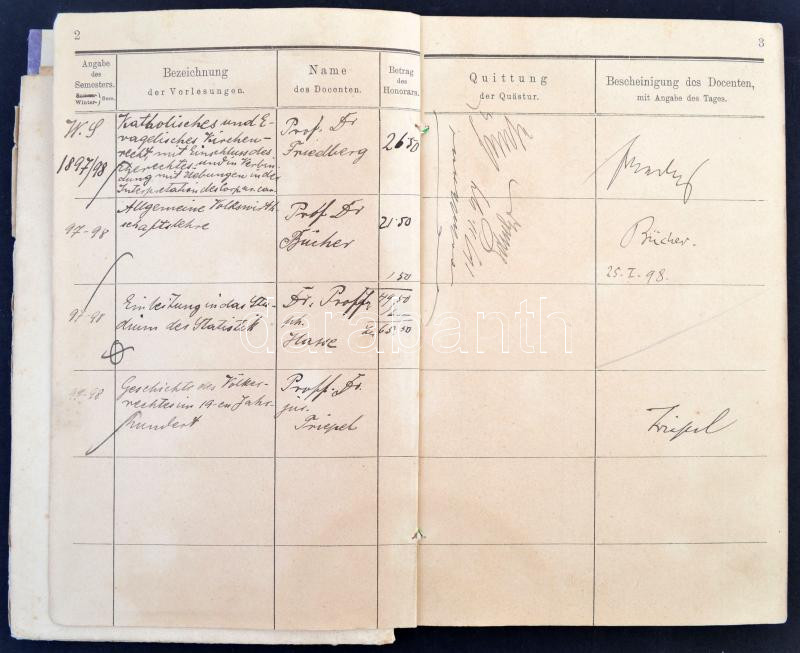 2
3
Angabe
des
Semesters.
Sommer-
Winter- } Sem.
Bezeichnung
der Vorlesungen.
Name
des Docenten.
Betrag
des
Honorars.
Quittung
der Quästur.
Bescheinigung des Docenten,
mit Angabe des Tages.
W. S
1897/98
Katholisches und E-
vagelisches Kirchen-
recht, mit Einschluss des
Eherechtes und in Verbin
dung mit Uebungen in der
Interpretation des Corpus can.
Prof. Dr
Friedberg
26 50
97-98
Allgemeine Volkswirth
schaftslehre
Prof Dr
Bücher
21·50
1 50
Bücher.
25-I-98.
97-98
Einleitung in das Stu-
dium der Statistik
Dr. Proff.
Hasse
49,50
65.50
97-98
Geschichte des Völker-
rechtes im 19-en Jahr
hundert
Proff. Dr.
jur.
Triepel
Triepel
darabanth